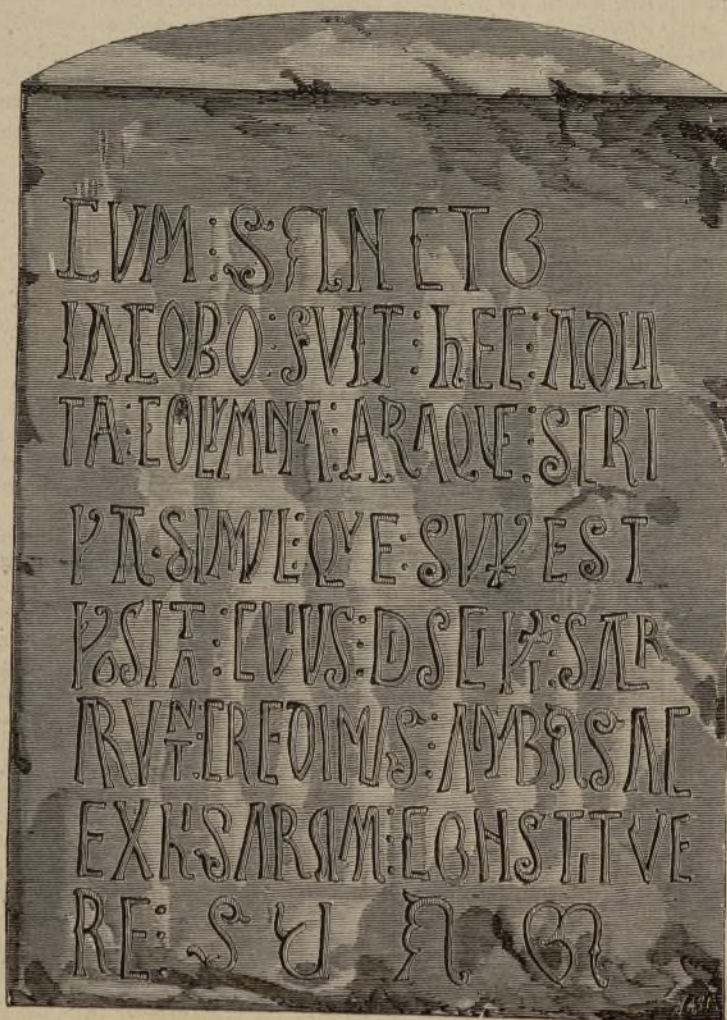 CVM : SANCTO
IACOBO : FVIT : hEC : ADLA
TA : COLVMNA : ARAQVE : SCRI
PTA · SIMVL : QVE : SVP EST
POSITA : CVIVS : DSCIPLI : SACR
ARVNT : CREDIMVS : AMBAS AC
EX hIS ARAM : CONSTITVE
RE : S V A M